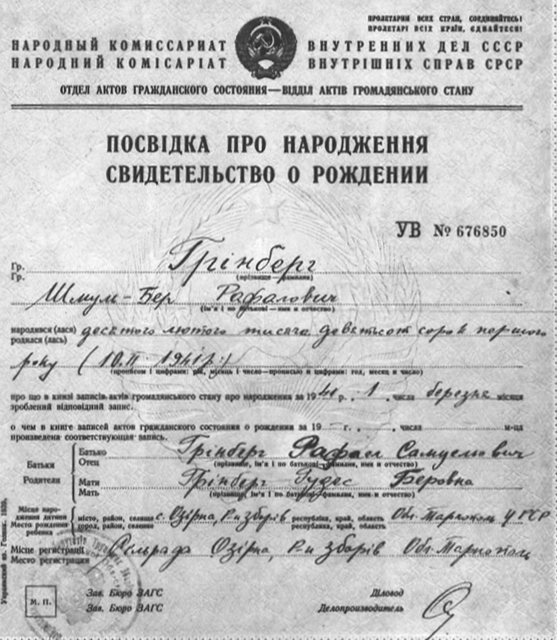 ПРОЛЕТАРИИ ВСЕХ СТРАН, СОЕДИНЯЙТЕСЬ!
ПРОЛЕТАРІ ВСІХ КРАЇН, ЄДНАЙТЕСЯ!
НАРОДНЫЙ КОМИССАРИАТ ВНУТРЕННИХ ДЕЛ СССР
НАРОДНИЙ КОМІСАРІАТ ВНУТРІШНІХ СПРАВ СРСР
ОТДЕЛ АКТОВ ГРАЖДАНСКОГО СОСТОЯНИЯ—ВІДДІЛ АКТІВ ГРОМАДЯНСЬКОГО СТАНУ
ПОСВІДКА ПРО НАРОДЖЕННЯ
СВИДЕТЕЛЬСТВО О РОЖДЕНИИ
УВ № 676850
Гр. Грінберг
Гр. (прізвище—фамилия)
Шмуль-Бер Рафалович
(ім'я і по батькові—имя и отчество)
народився (лася) десятого лютого тисяча девятсот сорок першого
родился (лась)
року (10.II-1941р.)
(прописом і цифрами: рік, місяць і число—прописью и цифрами: год, месяц и число)
про що в книзі записів актів громадянського стану про народження за 19 1 числа березня місяця
зроблений відповідний запис.
о чем в книге записей актов гражданского состояния о рождении за 19 числа м-ца
произведена соответствующая запись.
Батьки Батько Грінберг Рафаел Самуелович
Отец (прізвище, ім'я і по батькові—фамилия, имя и отчество)
Родители Мати Грінберг Гудес Беровна
Мать (прізвище, ім'я і по батькові—фамилия, имя и отчество)
Місце народження дитини місто, район, селище с. Озірна, Р-н Зборів республіка, край, область Обл. Тарнополь УРСР
Место рождения ребенка город, район, селение республика, край, область
Місце регистрації Сільрада Озірна, Р-н Зборів Обл. Тарнополь
Место регистрации
М. П.
Зав. Бюро ЗАГС Діловод
Зав. Бюро ЗАГС Делопроизводитель